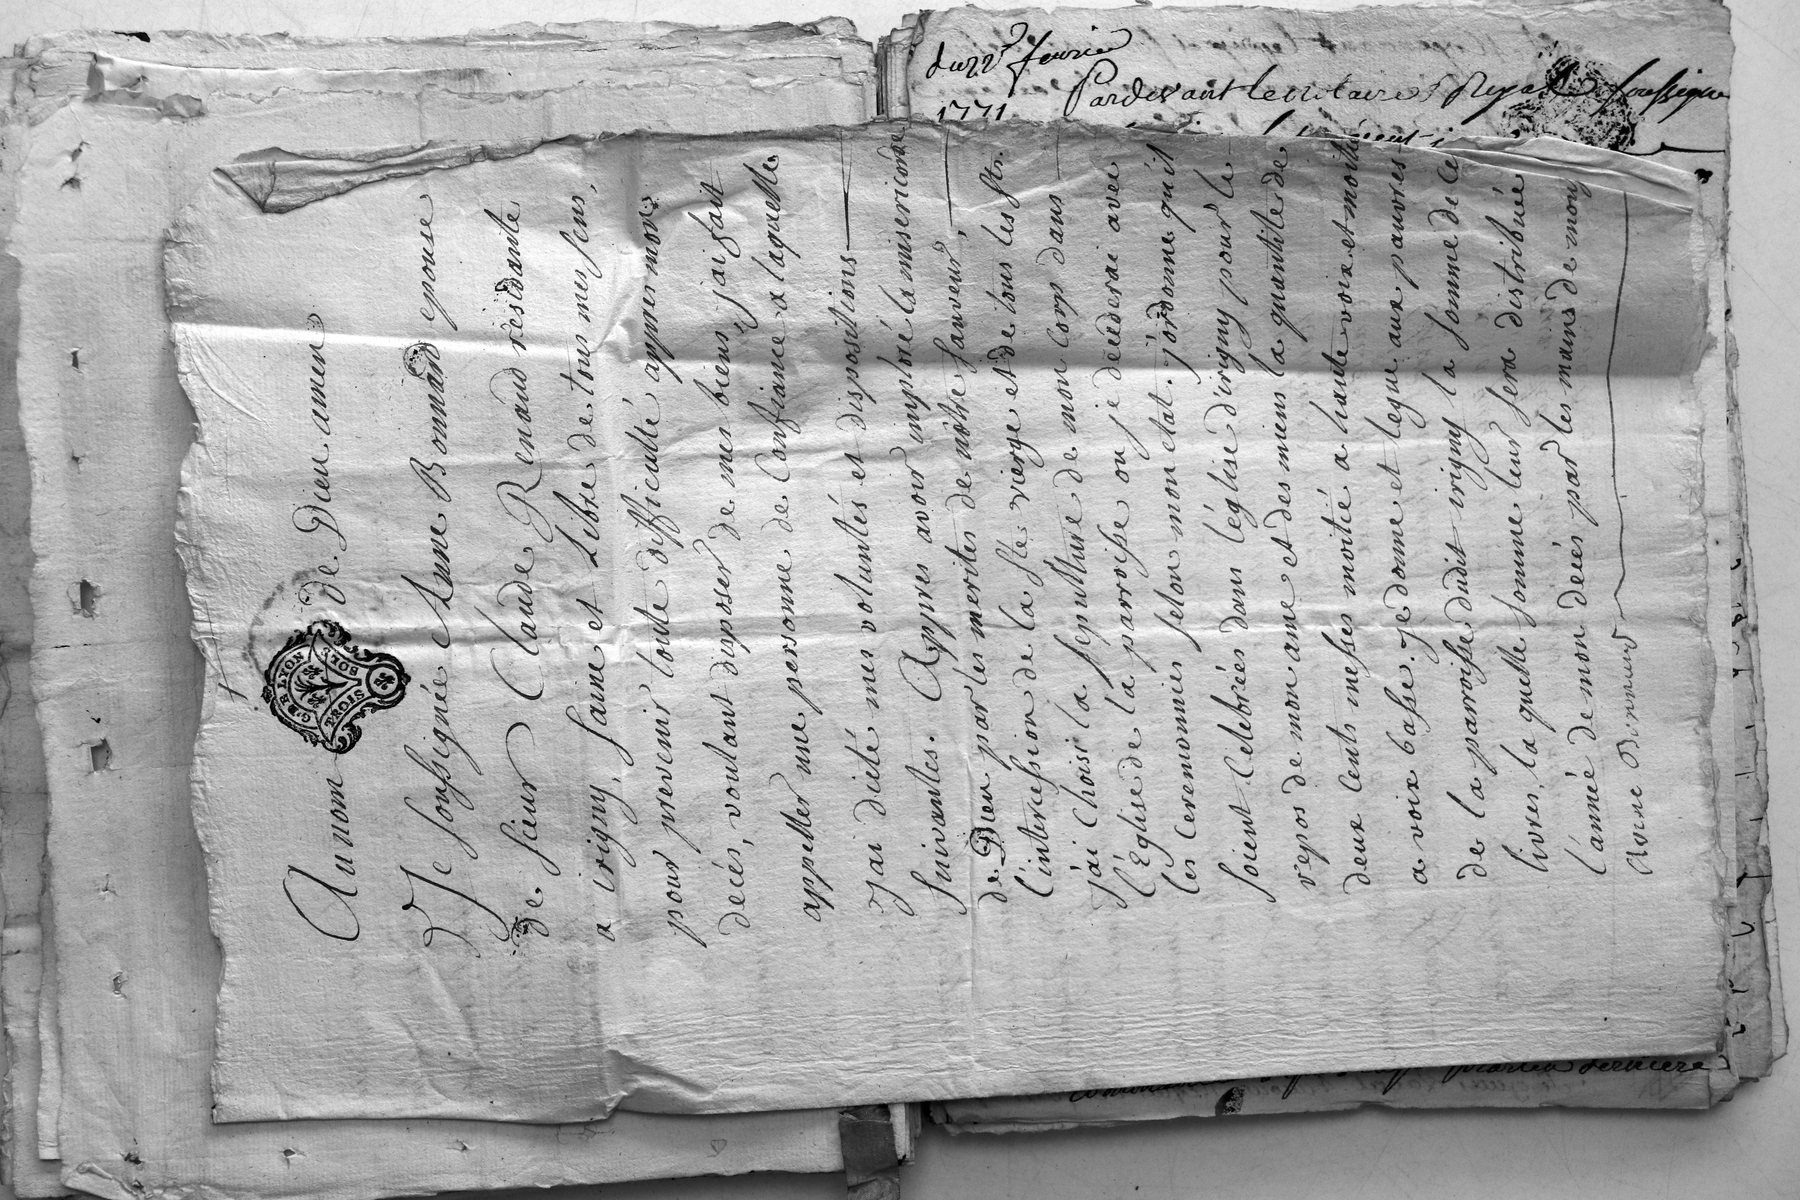 du 22e fevrier
1771
Pardevant le notaire Royal soussigné
Au nom de Dieu amen
GER LYON
TROIS SOLS
Je soussignée Anne Bonnand epouse
de sieur Claude Renaud residante
a irigny, saine et Libre de tous mes sens,
pour prevenir toute difficulté appres mon
decés, voulant disposer de mes biens, j'ai fait
appeller une personne de Confiance a laquelle
J'ai dicté mes voluntés et dispositions
suivantes. Appres avoir imploré la misericorde
de Dieu par les merites de nôtre sauveur,
l'intercession de la ste vierge et de tous les sts.
J'ai choisi la sepulture de mon corp dans
l'Eglise de la parroisse ou je decederai avec
les ceremonies selon mon etat. j'ordonne qu'il
soient Celebrées dans l'église d'irigny pour le
repos de mon ame et des miens la quantité de
deux Cents messes moitié a haute voix et moitié
a voix basse. Je donne et legue aux pauvres
de la parroisse dudit irigny la somme de
livres, la quelle somme leur sera distribuée
l'année de mon decés par les mains de mon
Anne Bonnand
derniere